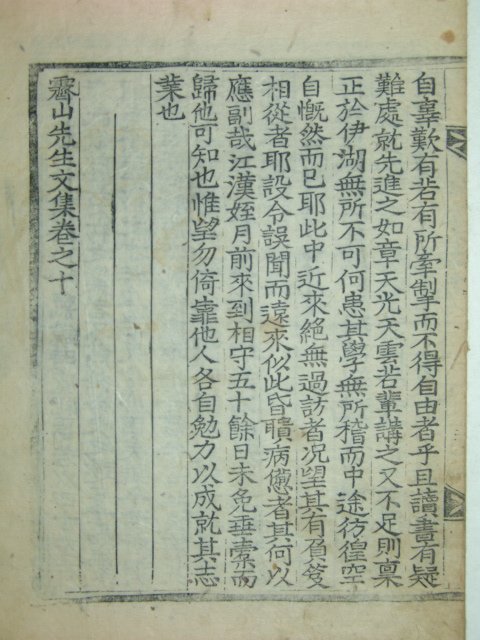 自辜歎有若有所牽掣而不得自由者乎且讀書有疑
難處就先進之如章天光天雲若輩講之又不足則稟
正於伊湖無所不可何患其學無所稽而中途彷徨空
自慨然而已耶此中近來絕無過訪者况望其有負笈
相從者耶設令誤聞而遠來似此昏聵病憊者其何以
應副哉江漢姪月前來到相守五十餘日未免垂槖而
歸他可知也惟望勿倚靠他人各自勉力以成就其志
業也
霽山先生文集卷之十